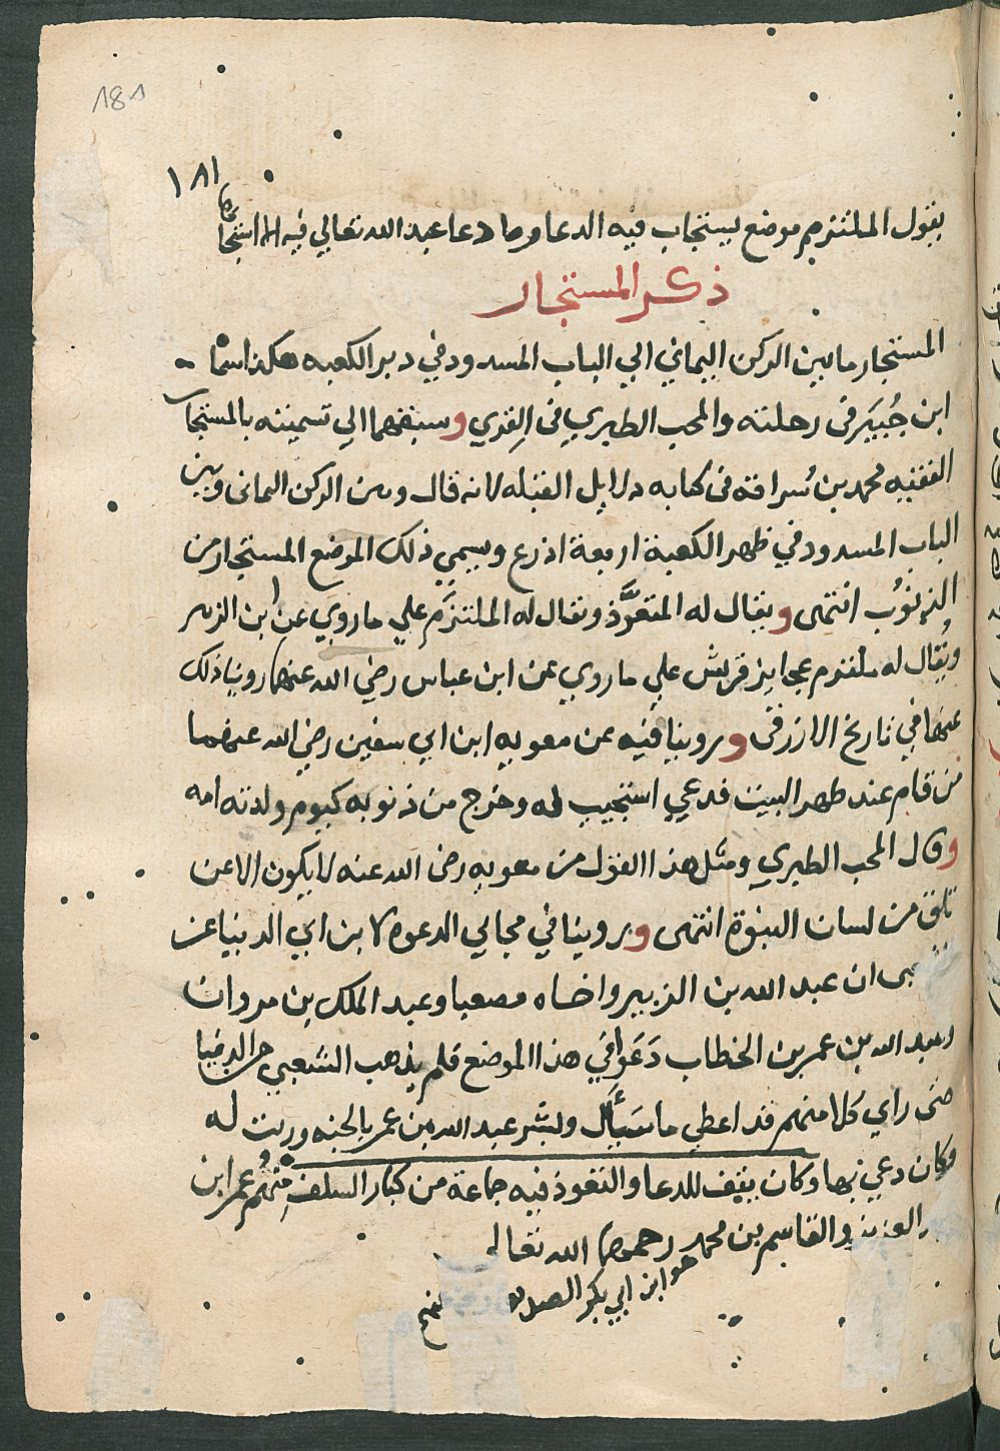 181
١٨١
يقول الملتزم موضع يستجاب فيه الدعا وما دعا عبد الله تعالي فيه الا استجابها
ذكر المستجار
المستجار ما بين الركن اليماني الي الباب المسدود في دبر الكعبه هكذا سماه
ابن جُبَيَر في رحلته والمحب الطبري في القري وسبقهما الي تسميته بالمستجار
الفقيه محمد بن سُراقه في كتابه دلايل القبله لانه قال وبين الركن اليماني وبين
الباب المسدود في ظهر الكعبة اربعة اذرع ويسمي ذلك الموضع المستجار من
الذنوُب انتهى ويقال له المتعوَّذ ويقال له الملتزَم علي ما روي عن ابن الزبير
ويُقال له ملتزم عجايز قريش علي ما روي عن ابن عباس رضي الله عنهما روينا ذلك
عنهما في تاريخ الازرقي وروينا فيه عن معويه ابن ابي سفين رضي الله عنهما
من قام عند ظهر البيت فدعي استجيب له وخرج من ذنوبه كيوم ولدته امه
وقال المحب الطبري ومثل هذا القول من معويه رضي الله عنه لا يكون الا عن
تلق من لسان النبوة انتهى وروينا في مجابي الدعوه لابن ابي الدنيا عن
ان عبد الله بن الزبير واخاه مصعبا وعبد الملك بن مروان
وعبد الله بن عمر بن الخطاب دَعَوا في هذا الموضع فلم يذهب الشعبي من الدنيا
حتى راي كلا منهم قد اعطي ما سَأَل وبشر عبد الله بن عمر بالجنه وريت له
وكان دعي بها وكان يقف للدعا والتعوذ فيه جماعة من كبار السلف مِنهُم عمر ابن
العزيز والقاسم بن محمد رحمهما الله تعالي
هو ابن ابي بكر الصديق